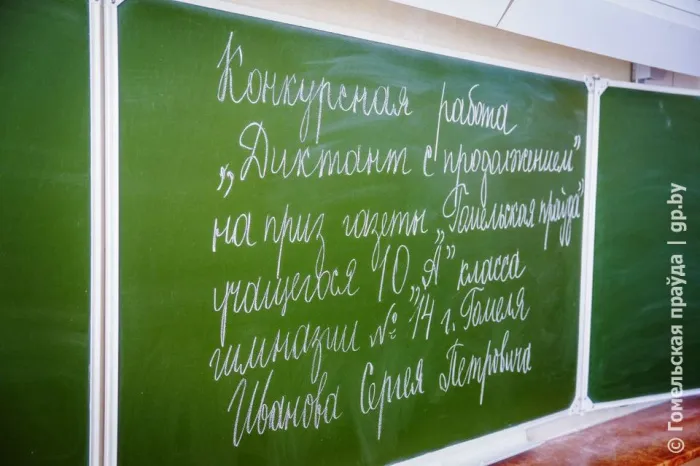 Конкурсная работа
„Диктант с продолжением"
на приз газеты „Гомельская прауда"
учащегося 10 „А" класса
гимназии № 14 г. Гомеля
Иванова Сергея Петровича
© Гомельская праўда | gp.by